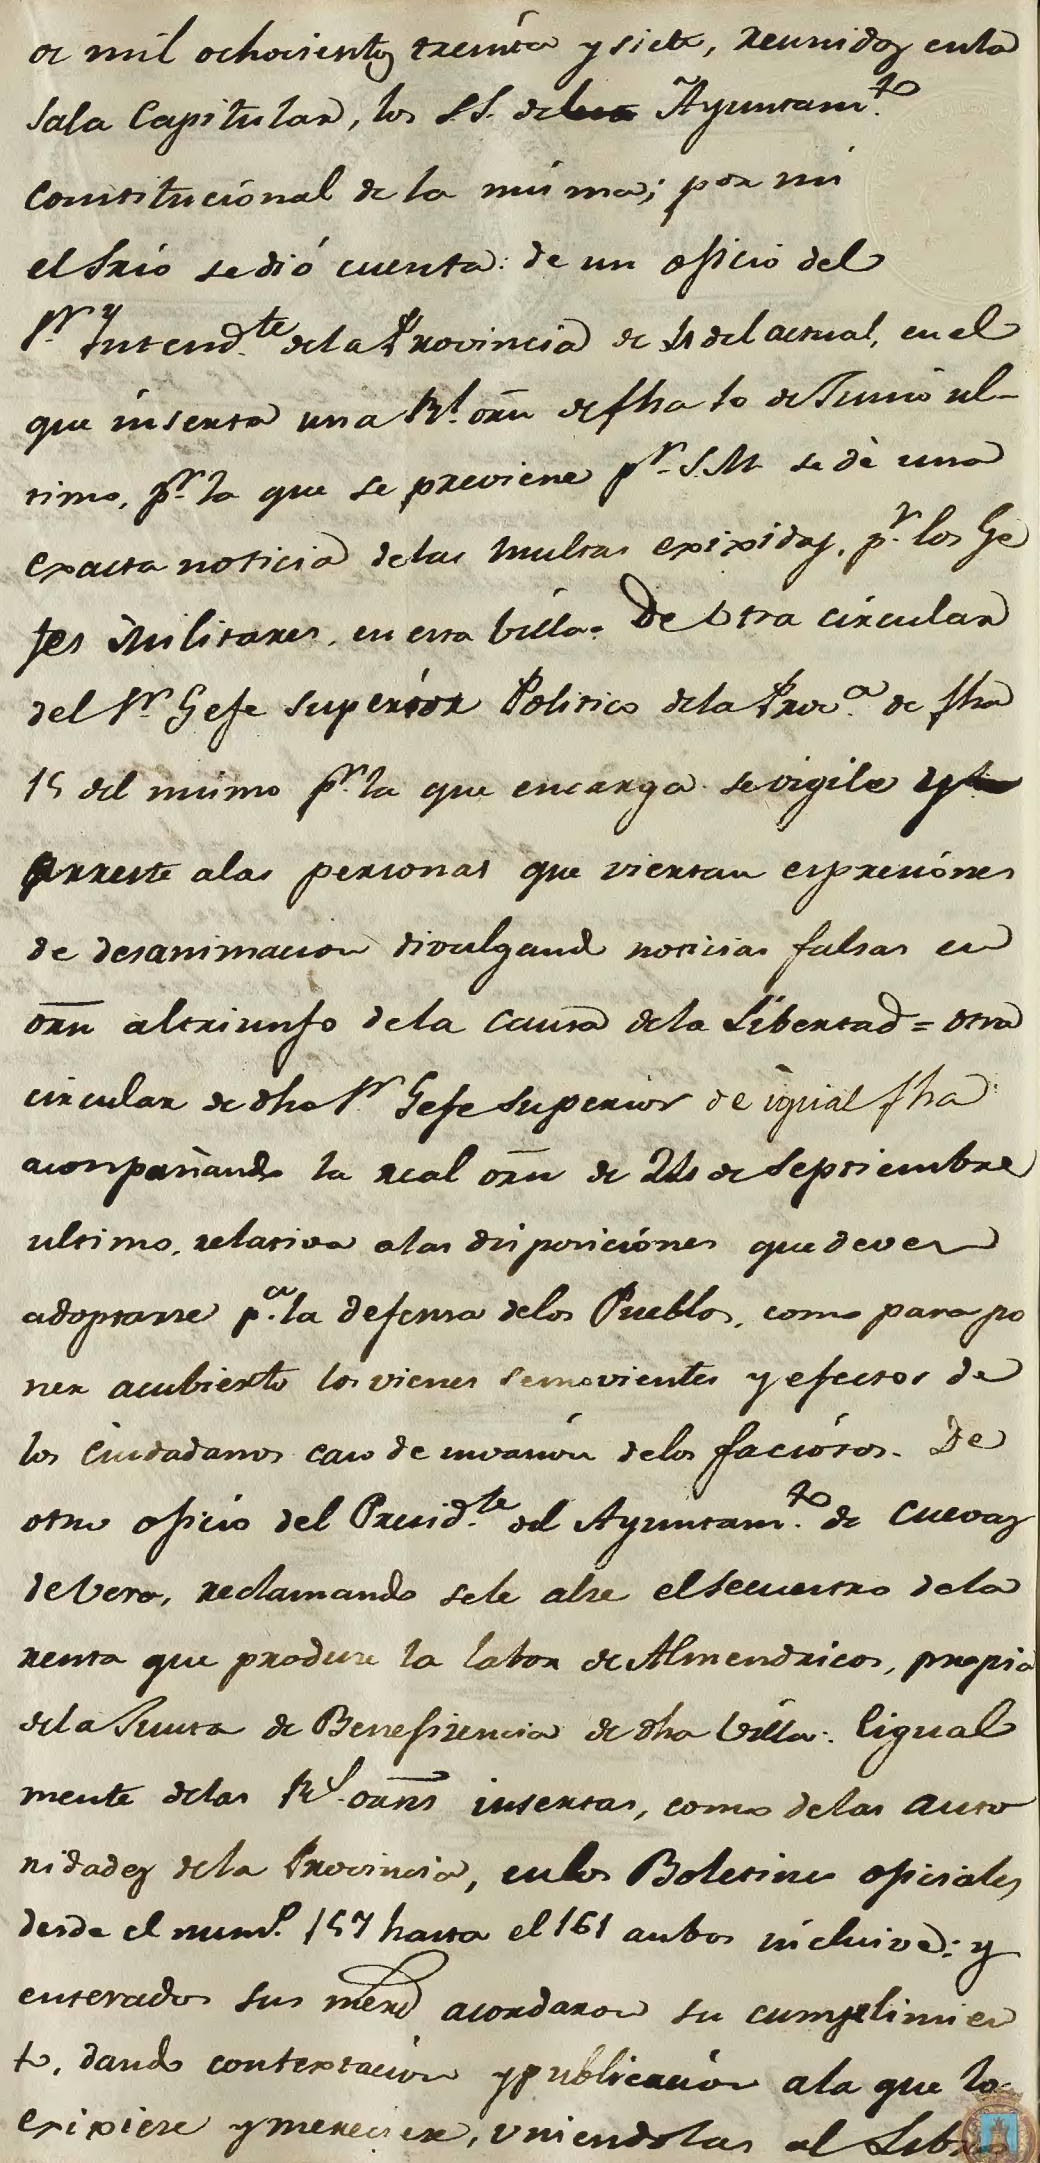 de mil ochocientos treinta y siete, reunidos en la
Sala Capitular, los S.S. de Ayuntam.to
Constitucional de la misma; por mi
el Srio se dió cuenta: de un oficio del
Sr. Yntend.te de la Provincia de 4 del actual, en el
que inserta una Rl. orn de fha 10 de Junio ul-
timo, pr. la que se previene pr. S.M. se dè una
exacta noticia de las multas exixidas, pr. los Ge
fes Militares, en esta Villa. De otra circular
del Sr. Gefe Superior Politico de la Provª. de fha
15 del mismo pr. la que encarga se vigile y
arreste a las personas que viertan expresiónes
de desanimacion divulgando noticias falsas en
orn al triunfo de la Causa de la Libertad = otra
circular de dho Sr Gefe Superior de igual fha
acompañando la real orn de 24 de Septiembre
ultimo, relativa a las disposiciónes que deven
adoptarse pª. la defensa de los Pueblos, como para po
ner a cubierto los vienes semovientes y efectos de
los Ciudadanos caso de invasión de los facciósos. De
otro oficio del Presid.te del Ayuntam.to de Cuevas
de Vera, reclamando se le alze el Secuestro de la
renta que produce la labor de Almendricos, propia
de la Junta de Benefizencia de dha Villa: E igual
mente de las Rl. orns insertas, como de las auto
ridades de la Provincia, en los Boletines oficiales
desde el numº. 157 hasta el 161 ambos inclusive: y
enterados sus merd acordaron su cumplimien
to, dando contextacion y publicación a la que lo
exixiere y mereciere, uniendolas al Libro